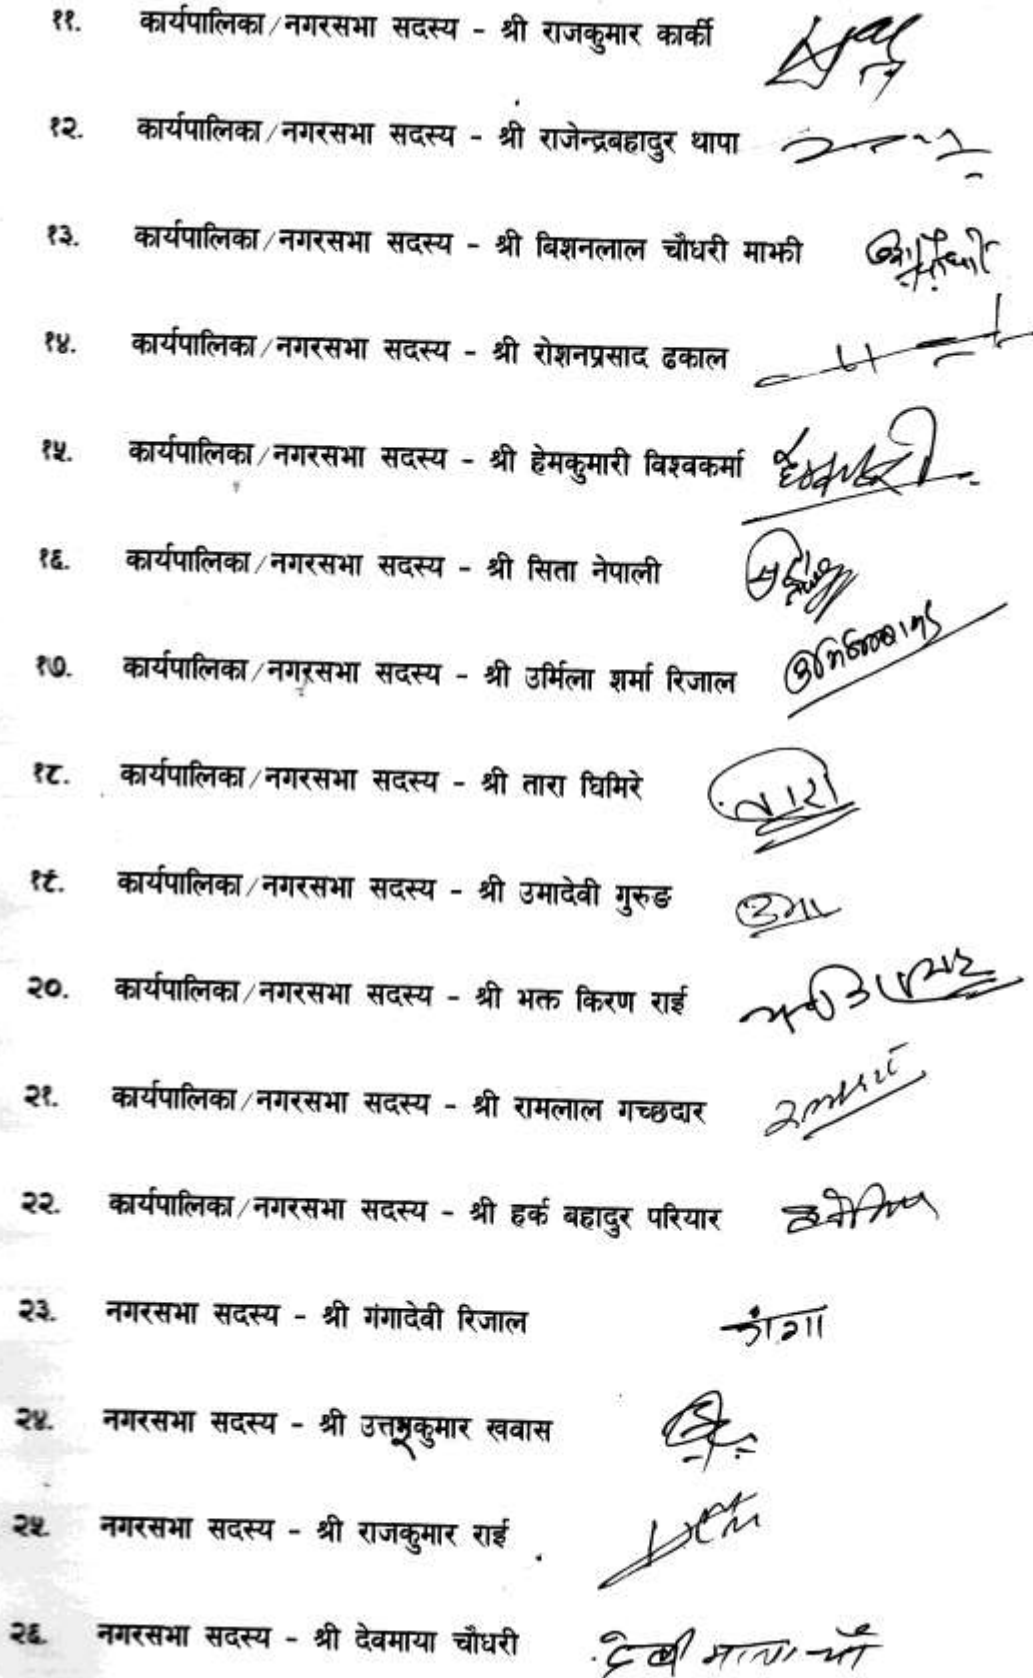 ११. कार्यपालिका/नगरसभा सदस्य - श्री राजकुमार कार्की
१२. कार्यपालिका/नगरसभा सदस्य - श्री राजेन्द्रबहादुर थापा
१३. कार्यपालिका/नगरसभा सदस्य - श्री बिशनलाल चौधरी माझी
१४. कार्यपालिका/नगरसभा सदस्य - श्री रोशनप्रसाद ढकाल
१५. कार्यपालिका/नगरसभा सदस्य - श्री हेमकुमारी विश्वकर्मा
१६. कार्यपालिका/नगरसभा सदस्य - श्री सिता नेपाली
१७. कार्यपालिका/नगरसभा सदस्य - श्री उर्मिला शर्मा रिजाल
१८. कार्यपालिका/नगरसभा सदस्य - श्री तारा घिमिरे तारा
१९. कार्यपालिका/नगरसभा सदस्य - श्री उमादेवी गुरुङ उमा
२०. कार्यपालिका/नगरसभा सदस्य - श्री भक्त किरण राई
२१. कार्यपालिका/नगरसभा सदस्य - श्री रामलाल गच्छदार
२२. कार्यपालिका/नगरसभा सदस्य - श्री हर्क बहादुर परियार
२३. नगरसभा सदस्य - श्री गंगादेवी रिजाल गंगा
२४. नगरसभा सदस्य - श्री उत्तमकुमार खवास
२५. नगरसभा सदस्य - श्री राजकुमार राई
२६. नगरसभा सदस्य - श्री देवमाया चौधरी